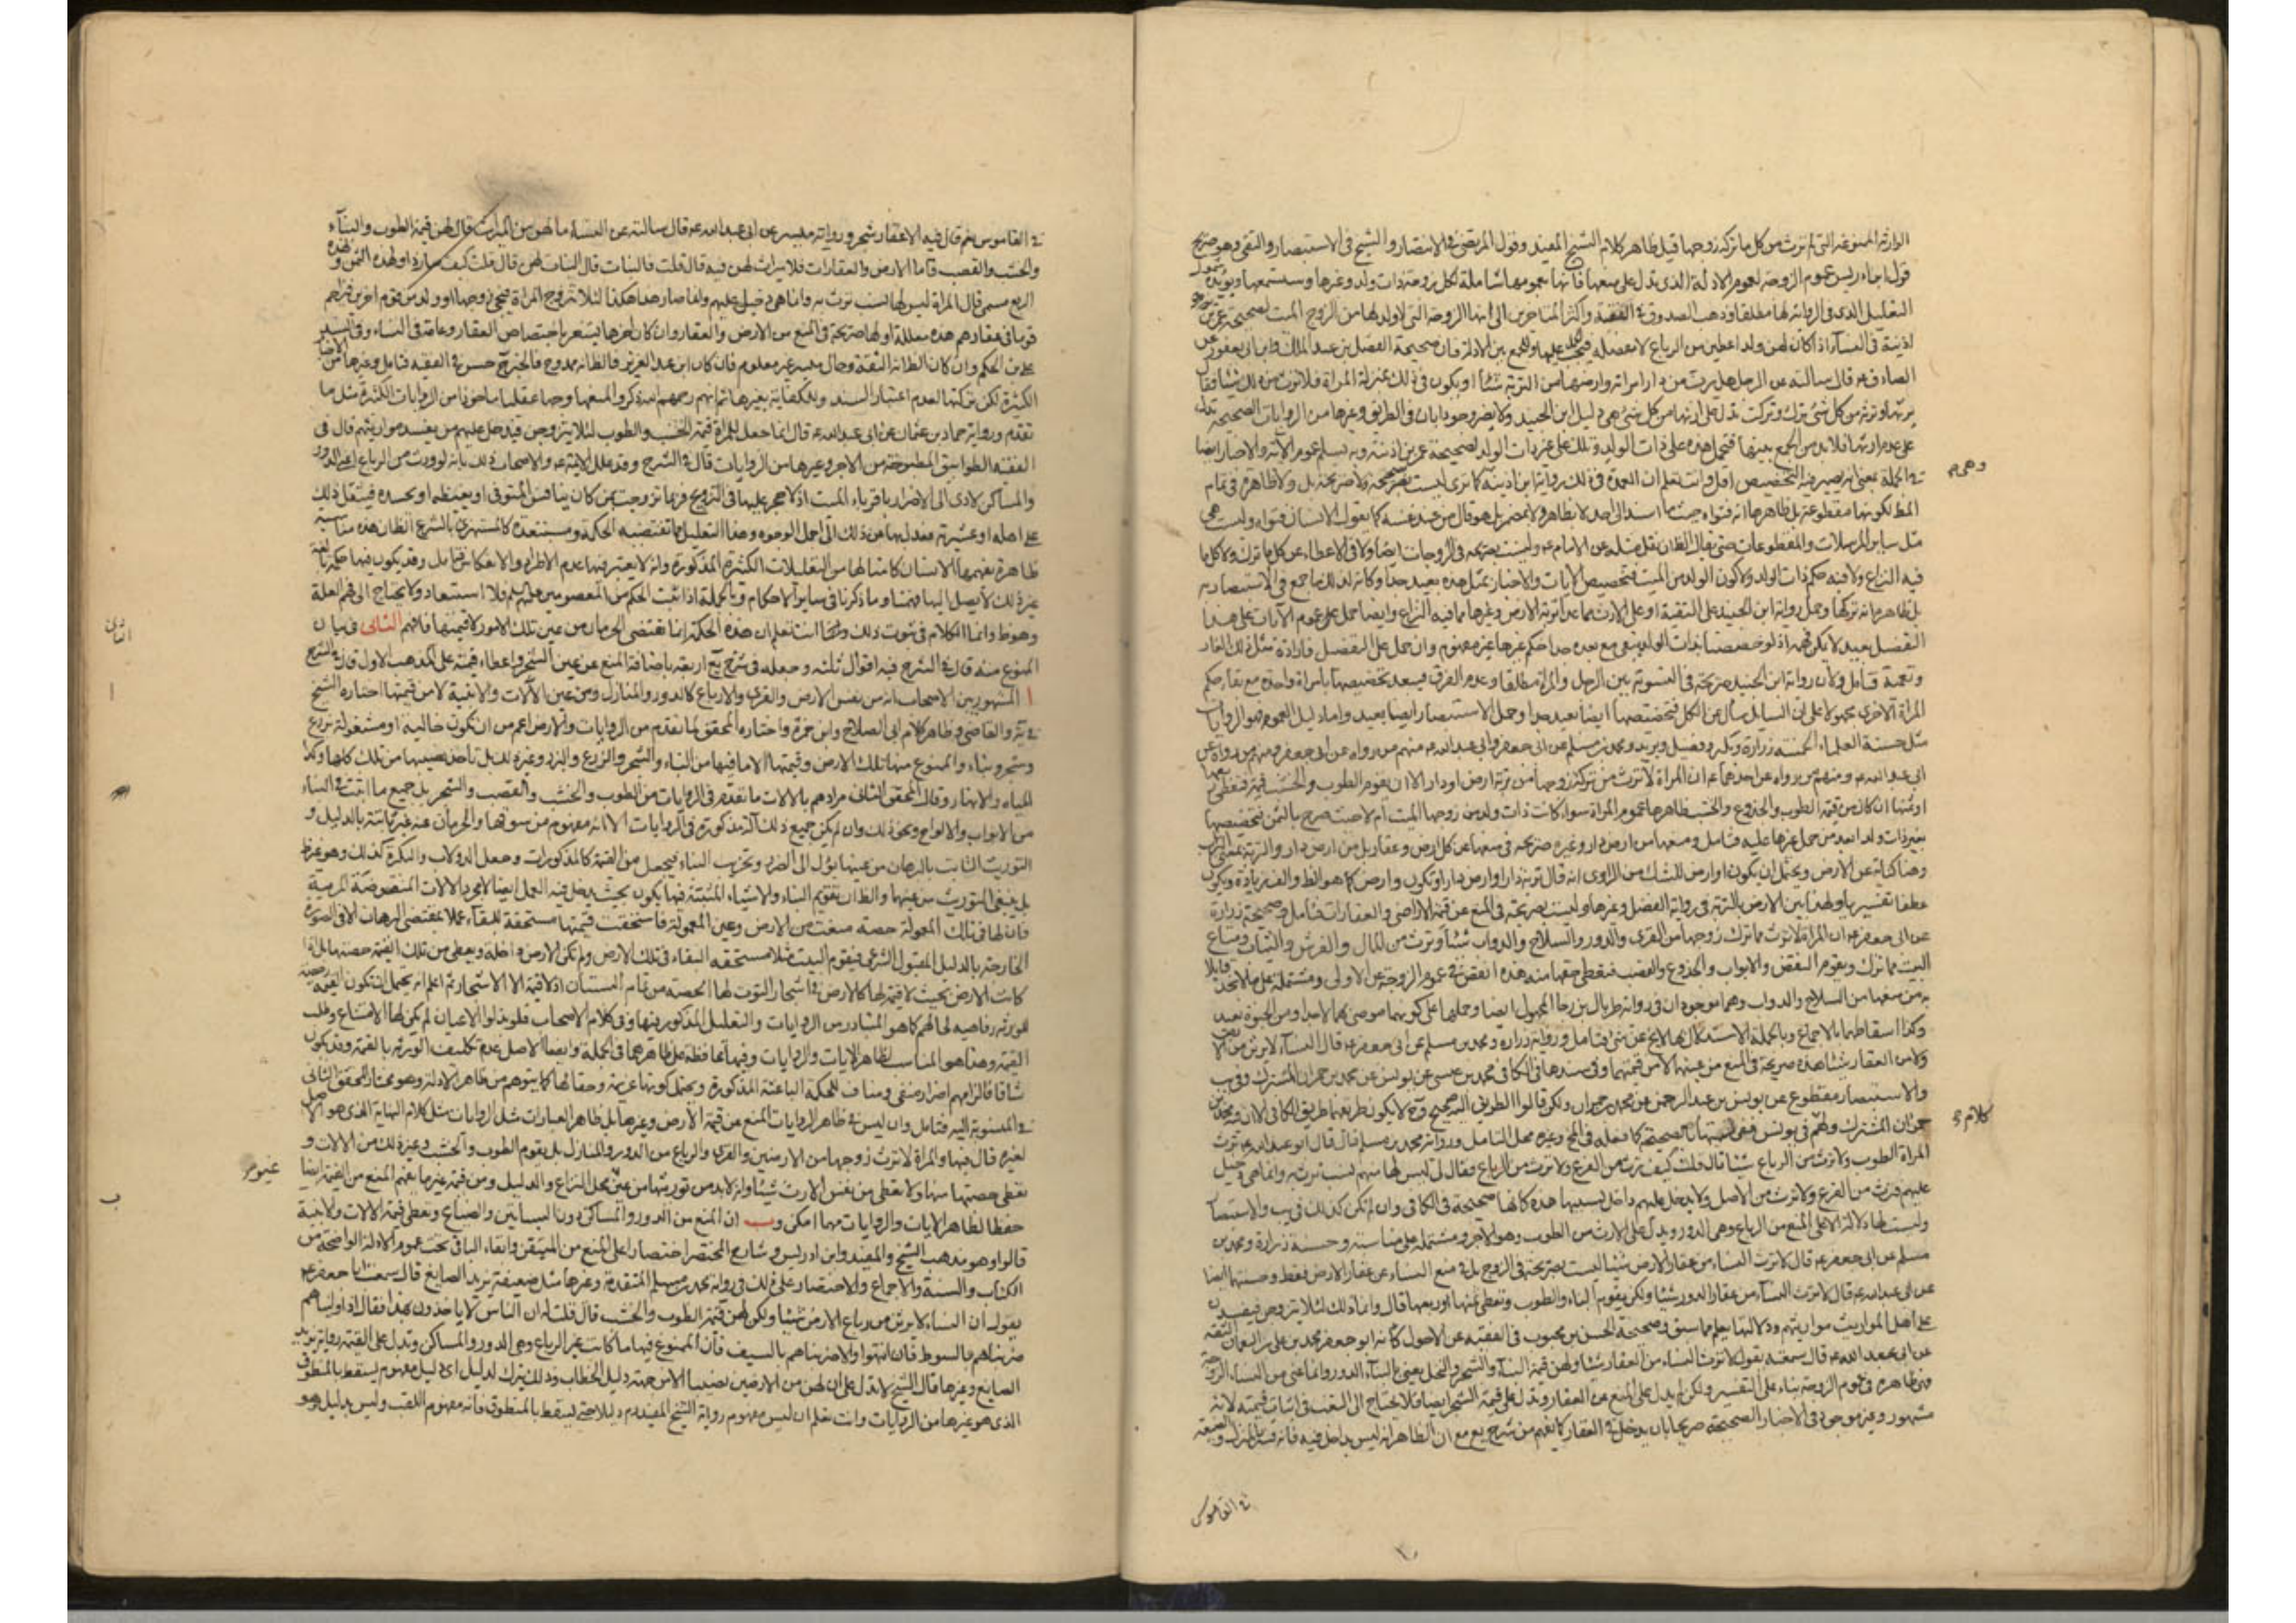 الوارثة الممنوعة التي لم ترث من كل ما تركه زوجها قيل ظاهر كلام الشيخ المفيد وقول المرتضى في الانتصار والشيخ في الاستبصار والتقى وهو صريح
قول ابن ادريس عموم الزوجة لعموم الادلة الذي يدل على منعها فانها بعمومها شاملة لكل زوجة ذات ولد وغيرها وستسمعها ويؤيده شمول
التعليل الذي في الرواية لها مطلقا وذهب الصدوق في الفقيه واكثر المتاخرين الى انها الزوجة التي لا ولد لها من الزوج الميت لصحيحة عمر بن
اذينة في النساء اذا كان لهن ولد اعطين من الرباع لا معضلة فيجب عليها وللجمع بين الادلة فان صحيحة الفضل بن عبد الملك وابن ابي يعفور عن
الصادق ع قال سالته عن الرجل هل يرث من دار امراته وارضها من التربة شيئا او يكون في ذلك بمنزلة المراة فلا يرث من ذلك شيئا فقال
يرثها وترثه من كل شئ ترك وتركت تدل على ارثها من كل شئ هي دليل ابن الجنيد ولا يضر وجود ابان في الطريق وغيرها من الروايات الصحيحة تدل
على عدم ارثها فلا بد من الجمع بينها فتحمل هذه على ذات الولد وتلك على غير ذات الولد لصحيحة عمر بن اذينة وبه يسلم عموم الآية والاخبار ايضا
في الجملة بمعنى انه يصير فيه التخصيص اقل وانت تعلم ان العمدة في ذلك رواية ابن اذينة كما ترى ليست بصحيحة ولا صريحة بل ولا ظاهرة في تمام
وهي م
المط لكونها مقطوعة بل ظاهرها انه فتواه حيث ما اسند الى احد لا بظاهر ولا بمضمر بل هو قال من عند نفسه كما يقول الانسان فتواه وليست هي
مثل ساير المرسلات والمقطوعات حتى يقال الظان نقل مثله عن الامام ع وليست بصريحة في الزوجات ايضا ولا في الاعطاء عن كل ما ترك ولا كل ما
فيه النزاع ولا فيه حكم ذات الولد ولا كون الولد من الميت فتخصيص الآيات والاخبار بمثل هذه بعيد جدا وكانه لذلك ما جمع في الاستبصار به
بل ظاهره انه تركها وحمل رواية ابن الجنيد على التقية او على الارث مما عدا تربة الارض وغيرها مما فيه النزاع وايضا حمل على عموم الآيات على هذا
التفصيل بعيد لا يكن فهمه اذ لو خصصنا بذات الولد يبقى مع بعده جدا حكم غيرها غير مفهوم وان حمل على التفصيل فارادة مثل ذلك الغاز
وتعمية فتامل ولان رواية ابن الجنيد صريحة في التسوية بين الرجل والمراة مطلقا وعدم الفرق فيبعد تخصيصها بامراة واحدة مع بقاء حكم
المراة الاخرى مجهولا على ان السايل سأل عن الكل فتخصيصها ايضا بعيد جدا وحمل الاستبصار ايضا بعيد واما دليل العموم فهو الروايات
مثل حسنة العلماء الخمسة زرارة وبكير وفضيل وبريد ومحمد بن مسلم عن ابي جعفر وابي عبد الله ع منهم من رواه عن ابي جعفر ومنهم من رواه عن
ابي عبد الله ع ومنهم من رواه عن احدهما ع ان المراة لا ترث من تركة زوجها من تربة ارض او دار الا ان يقوم الطوب والخشب قيمة فتعطى ربعها
او ثمنها ان كان من قيمة الطوب والجذوع والخشب ظاهرها عموم المراة سواء كانت ذات ولد من زوجها الميت ام لا حيث صرح بالثمن فتخصيصها
بغير ذات ولد ابعد من حمل غيرها عليه فتامل ومنعها من ارض دار وغيره صريحة في منعها عن كل ارض وعقار بل من ارض دار والتربة بمعنى التراب
وهنا كناية عن الارض ويحتمل ان يكون او ارض للشك من الراوي انه قال تربة دار او ارض دار او تكون وارض كما هو الظ والفه زيادة ويكون
عطفا تفسيريا ولهذا بين الارض بالتربة في رواية الفضل وغيرها وليست بصريحة في المنع عن قيمة الاراضي والعقارات فتامل وصحيحة زرارة
عن ابي جعفر ع ان المراة لا ترث مما ترك زوجها من القرى والدور والسلاح والدواب شيئا وترث من المال والفرش والثياب ومتاع
البيت مما ترك ويقوم النقض والابواب والجذوع والقصب فتعطى حقها منه هذه انقص في عموم الزوجة عن الاولى ومشتملة على ما لا نجد قايلا
به من منعها من السلاح والدواب وهما موجودان في رواية طربال بن رجا المجهول ايضا وحملها على كونهما موصى بهما لاحد او من الحبوة بعيد
وكذا اسقاطهما بالاجماع وبالجملة الاستدلال بها لا يخ عن شئ فتامل ورواية زرارة ومحمد بن مسلم عن ابي جعفر ع قال النساء لا يرثن من الارض
ولا من العقار شيئا هذه صريحة في المنع من عينها لا من قيمتها وفي سندها في الكافي محمد بن عيسى عن يونس عن محمد بن حمران المشترك وفي يب
والاستبصار مقطوع عن يونس بن عبد الرحمن عن محمد بن حمران ولكن قالوا الطريق اليه صحيح وح لا يكون طريقها طريق الكافي لان محمد بن
حمران المشترك ولهم في يونس ففي تسميتها بالصحيحة كما فعله في المخ وغيره محل التامل ورواية محمد بن مسلم قال قال ابو عبد الله ع ترث
كلام م
المراة الطوب ولا ترث من الرباع شيئا قال قلت كيف ترث من الفرع ولا ترث من الرباع فقال لي ليس لها منهم نسب ترث به وانما هي دخيل
عليهم فترث من الفرع ولا ترث من الاصل ولا يدخل عليهم داخل بسببها هذه كانها صحيحة في الكافي وان لم تكن كذلك في يب والاستبصار
وليست لها دلالة الا على المنع من الرباع وهي الدور ويدل على الارث من الطوب وهو الآجر ومشتملة على مناسبة وحسنة زرارة ومحمد بن
مسلم عن ابي جعفر ع قال لا ترث النساء من عقار الارض شيئا ليست بصريحة في الزوج بل في منع النساء عن عقار الارض فقط وحسنتهما ايضا
عن ابي عبد الله ع قال لا ترث النساء من عقار الدور شيئا ولكن يقوم البناء والطوب وتعطى ثمنها او ربعها قال وانما ذلك لئلا يتزوجن فيفسدن
على اهل المواريث مواريثهم ودلالتها يعلم مما سبق وصحيحة الحسن بن محبوب في الفقيه عن الاحول كانه ابو جعفر محمد بن علي بن النعمان الثقة
عن ابي عبد الله ع قال سمعته يقول لا ترث النساء من العقار شيئا ولهن قيمة البناء والشجر والنخل يعني بالبناء الدور وانما عنى من النساء الزوجة
هي ظاهرة في عموم الزوجة بناء على التفسير ولكن لم يدل على المنع عن العقار وتدل على قيمة الشجر ايضا فلا يحتاج الى التعب في اثبات قيمته لانه
مشهور وغير موجود في الاخبار الصحيحة صريحا بان يدخل في العقار كما يفهم من شرح يع مع ان الظاهر انه ليس بداخل فيه فانه قيل المنزل والضيعة
في القاموس
في القاموس نعم قال فيه الاعقار شجر ورواية ميسر عن ابي عبد الله ع قال سالته عن النساء ما لهن من الميراث قال لهن قيمة الطوب والبناء
والخشب والقصب فاما الارض والعقارات فلا ميراث لهن فيه قال قلت فالبنات قال البنات لهن قال قلت كيف صار ذا ولهذه الثمن ولهذه
الربع مسمى قال المراة ليس لها نسب ترث به وانما هي دخيل عليهم وانما صار هذا هكذا لئلا تتزوج المراة فيجئ زوجها او ولد من قوم اخرين فيزاحم
قوما في عقارهم هذه معللة او لها صريحة في المنع من الارض والعقار وان كان اخرها يشعر باختصاص العقار وعامة في النساء وفي السند
علي بن الحكم وان كان الظ انه الثقة وحال ميسر غير معلوم فان كان ابن عبد العزيز فالظ انه ممدوح فالخبر ح حسن وفي الفقيه فتامل وغيرها من الاخبار
الكثيرة لكن تركتها لعدم اعتبار السند وللكفاية بغيرها ثم انهم رحمهم الله ذكروا لمنعها وجها عقليا ماخوذا من الروايات الكثيرة مثل ما
تقدم ورواية حماد بن عثمان عن ابي عبد الله ع قال انما جعل للمراة قيمة الخشب والطوب لئلا يتزوجن فيدخل عليهم من يفسد مواريثهم قال في
الفقيه الطوابيق المطبوخة من الآجر وغيرها من الروايات قال في الشرح وقد علل الايمة ع والاصحاب ذلك بانه لو ورثت من الرباع اعني الدور
والمساكن لادى الى الاضرار باقرباء الميت اذ لا حجر عليها في التزويج فربما تزوجت بمن كان ينافس المتوفى او يغبطه او يحسده فيثقل ذلك
على اهله او عشيرته فعدل بها عن ذلك الى اجمل الوجوه وهذا التعليل مما تقتضيه الحكمة ومستبعده كالمستهزئ بالشرع الظان هذه مناسبة
ظاهرة يفهمها الانسان كامثالها من التعليلات الكثيرة المذكورة وانه لا يعتبر فيها عدم الاطراد والانعكاس فتامل وقد يكون فيها حكمة بالغة
غير ذلك لا يصل اليها فهمنا وما ذكرنا في ساير الاحكام وبالجملة اذا ثبت الحكم من المعصومين عليهم السلام فلا استبعاد ولا يحتاج الى فهم العلة
وهو ظ وانما الكلام في ثبوت ذلك وايضا انت تعلم ان هذه الحكمة انما تقتضي الحرمان من عين تلك الامور لا قيمتها فافهم الثاني في بيان
الممنوع منه قال في الشرح فيه اقوال ثلثة وجعله في شرح يع اربعة باضافة المنع عن عين الشجر واعطاء قيمته على المذهب الاول قال في الشرح
ا المشهور بين الاصحاب انه من نفس الارض والقرى والارباع كالدور والمنازل ومن عين الآلات والابنية لا من قيمتها اختاره الشيخ
في ية والقاضي وظاهر كلام ابي الصلاح وابن حمزة واختاره المحقق لما تقدم من الروايات والارض اعم من ان تكون خالية او مشغولة بزرع
وشجر وبناء والممنوع منها تلك الارض وقيمتها لا ما فيها من البناء والشجر والزرع والبذر وغير ذلك بل تاخذ نصيبها من تلك كلها وكذا
المياه والانهار وقال المحقق الثاني مرادهم بالآلات ما تقدم في الروايات من الطوب والخشب والقصب والشجر بل جميع ما اثبت في البناء
من الابواب والالواح ونحو ذلك وان لم يكن جميع ذلك آلة مذكورة في الروايات الا انه مفهوم من سوقها والحرمان عنه غير ثابتة بالدليل و
التوريث الثابت بالبرهان من عينها يؤل الى الضرر وتخريب البناء فيجعل من القيمة كالمذكورات وجعل الدولاب والبكرة كذلك وهو غير ظ
بل ينبغي التوريث من عينها والظ ان تقويم البناء والاشياء المثبتة فيها يكون بحيث يدخل فيه العمل ايضا لا مجرد الآلات المنقوضة المرمية
فان لها في تلك المعمولة حصة منعت من الارض وعين المعمولة فاستحقت قيمتها مستحقة للبقاء عملا بمقتضى البرهان الا في الصورة
الخارجة بالدليل المقبول الشرعي فيقوم البيت مثلا مستحقة البقاء في تلك الارض ولم تكن الارض داخلة ويعطى من تلك القيمة حصة مالها اذا
كانت الارض بحيث لا قيمة لها كالارض في اشجار التوت لها الحصة من تمام البستان اذ لا قيمة الا الاشجار ثم اعلم انه يحتمل ان تكون القيمة رخصة
للورثة رفاهية لحالهم كما هو المتبادر من الروايات والتعليل المذكور فيها وفي كلام الاصحاب فلو بذلوا الاعيان لم يكن لها الامتناع وطلب
القيمة وهذا هو المناسب لظاهر الآيات والروايات وفيها محافظة على ظاهرها في الجملة وايضا الاصل عدم تكليف الورثة بالقيمة وقد يكون
شاقا فالزامهم اضرار منفي ومناف للحكمة الباعثة المذكورة ويحتمل كونها عزيمة وحقا لها كما يتوهم من ظاهر الادلة وهو مختار المحقق الثاني
والمنسوبة اليه فتامل وان ليس في ظاهر الروايات المنع عن قيمة الارض وغيرها بل ظاهر العبارات مثل الروايات مثل كلام النهاية الذي هو الاصل
لغيره قال فيها والمراة لا ترث زوجها من الارضين والقرى والرباع من الدور والمنازل بل يقوم الطوب والخشب وغير ذلك من الآلات و
تعطى حصتها منها ولا تعطى من نفس الارث شيئا وانه لا بد من توريثها من عين محل النزاع والدليل ومن قيمة غيرها يفهم المنع من القيمة ايضا
حفظا لظاهر الآيات والروايات مهما امكن و ب ان المنع من الدور والمساكن دون البساتين والضياع وتعطى قيمة الآلات والابنية
قالوا وهو مذهب الشيخ والمفيد وابن ادريس وشارح المختصر اختصارا على المنع من المتيقن وابقاء الباقي تحت عموم الادلة الواضحة من
الكتاب والسنة والاجماع والاختصار على ذلك في رواية محمد بن مسلم المتقدمة وغيرها مثل ضعيفة يزيد الصايغ قال سمعت ابا جعفر ع
يقول ان النساء لا يرثن من رباع الارض شيئا ولكن لهن قيمة الطوب والخشب قال قلت له ان الناس لا ياخذون بهذا فقال اذا وليناهم
ضربناهم بالسوط فان انتهوا والا ضربناهم بالسيف فان الممنوع فيهما ما كانت غير الرباع وهي الدور والمساكن وتدل على القيمة رواية يزيد
الصايغ وغيرها قال الشيخ لا تدل على ان لهن من الارضين نصيبا الا من جهة دليل الخطاب وذلك يترك لدليل اي دليل مفهوم يسقط بالمنطوق
الذي هو غيرها من الروايات وانت تعلم ان ليس مفهوم رواية الشيخ المفيد م دليلا حتى يسقط بالمنطوق فانه مفهوم اللقب وليس بدليل وهو